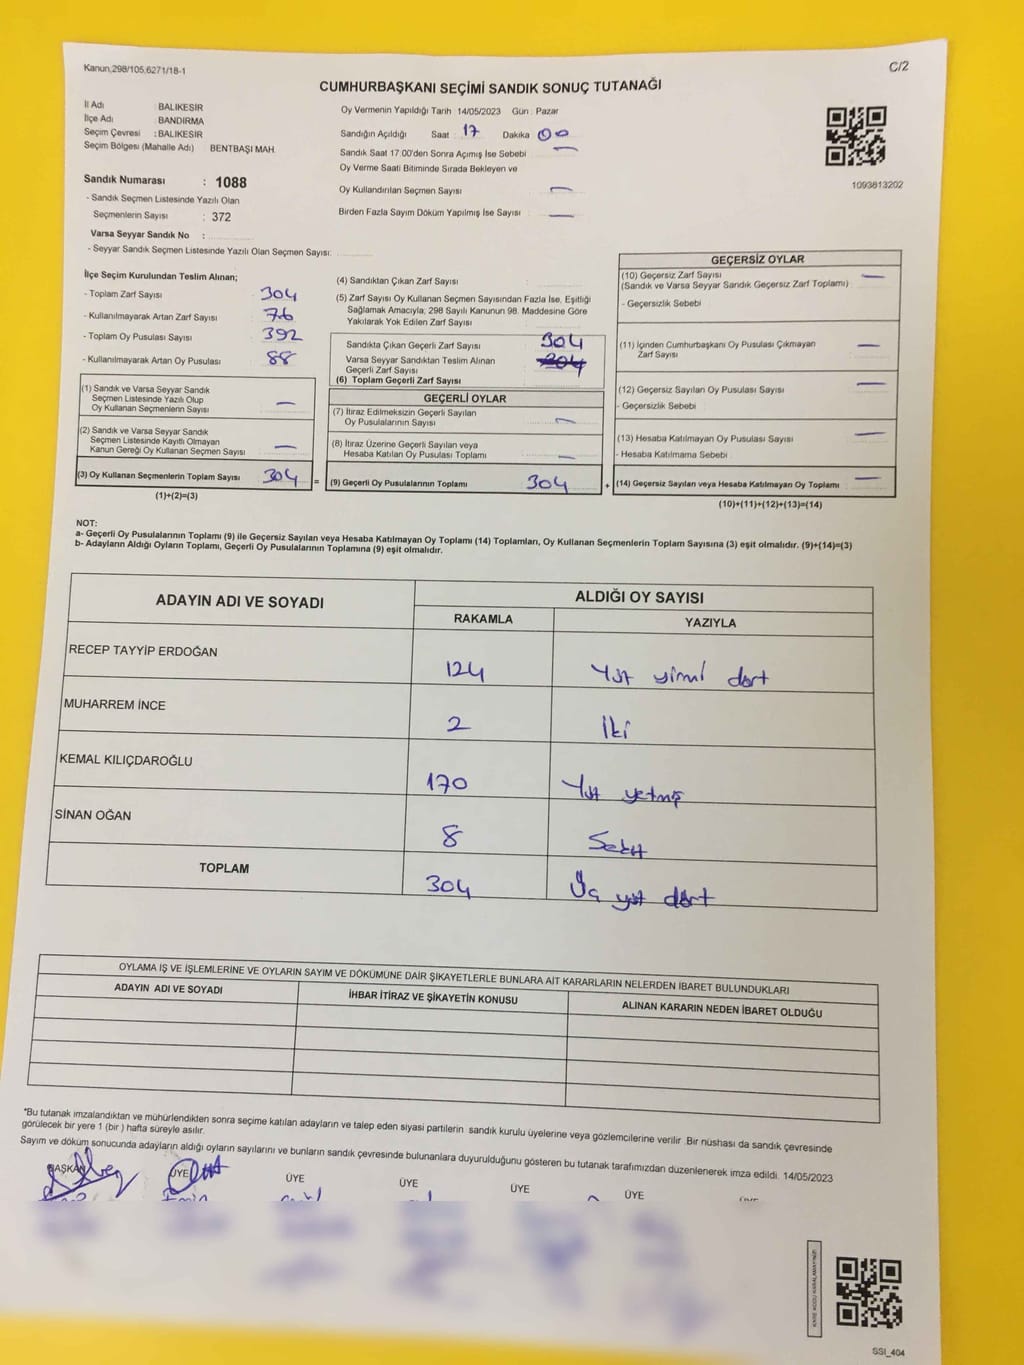 Kanun,298/105,6271/18-1
C/2
CUMHURBAŞKANI SEÇİMİ SANDIK SONUÇ TUTANAĞI
İl Adı BALIKESİR
İlçe Adı BANDIRMA
Seçim Çevresi : BALIKESİR
Seçim Bölgesi (Mahalle Adı) BENTBAŞI MAH.
Oy Vermenin Yapıldığı Tarih 14/05/2023 Gün : Pazar
Sandığın Açıldığı Saat : 17 Dakika 00
Sandık Saat 17:00'den Sonra Açımış İse Sebebi —
Oy Verme Saati Bitiminde Sırada Bekleyen ve
Oy Kullandırılan Seçmen Sayısı —
Birden Fazla Sayım Döküm Yapılmış İse Sayısı —
1093813202
Sandık Numarası : 1088
- Sandık Seçmen Listesinde Yazılı Olan
Seçmenlerin Sayısı : 372
Varsa Seyyar Sandık No :
- Seyyar Sandık Seçmen Listesinde Yazılı Olan Seçmen Sayısı:
İlçe Seçim Kurulundan Teslim Alınan;
- Toplam Zarf Sayısı 304
- Kullanılmayarak Artan Zarf Sayısı 76
- Toplam Oy Pusulası Sayısı 392
- Kullanılmayarak Artan Oy Pusulası 88
(1) Sandık ve Varsa Seyyar Sandık
Seçmen Listesinde Yazılı Olup
Oy Kullanan Seçmenlerin Sayısı —
(2) Sandık ve Varsa Seyyar Sandık
Seçmen Listesinde Kayıtlı Olmayan
Kanun Gereği Oy Kullanan Seçmen Sayısı —
(3) Oy Kullanan Seçmenlerin Toplam Sayısı 304 =
(1)+(2)=(3)
(4) Sandıktan Çıkan Zarf Sayısı
(5) Zarf Sayısı Oy Kullanan Seçmen Sayısından Fazla İse, Eşitliği
Sağlamak Amacıyla; 298 Sayılı Kanunun 98. Maddesine Göre
Yakılarak Yok Edilen Zarf Sayısı
Sandıkta Çıkan Geçerli Zarf Sayısı 304
Varsa Seyyar Sandıktan Teslim Alınan
Geçerli Zarf Sayısı 304
(6) Toplam Geçerli Zarf Sayısı
GEÇERLİ OYLAR
(7) İtiraz Edilmeksizin Geçerli Sayılan
Oy Pusulalarının Sayısı —
(8) İtiraz Üzerine Geçerli Sayılan veya
Hesaba Katılan Oy Pusulası Toplamı —
(9) Geçerli Oy Pusulalarının Toplamı 304 +
GEÇERSİZ OYLAR
(10) Geçersiz Zarf Sayısı —
(Sandık ve Varsa Seyyar Sandık Geçersiz Zarf Toplamı)
- Geçersizlik Sebebi
(11) İçinden Cumhurbaşkanı Oy Pusulası Çıkmayan
Zarf Sayısı —
(12) Geçersiz Sayılan Oy Pusulası Sayısı —
- Geçersizlik Sebebi
(13) Hesaba Katılmayan Oy Pusulası Sayısı —
- Hesaba Katılmama Sebebi
(14) Geçersiz Sayılan veya Hesaba Katılmayan Oy Toplamı —
(10)+(11)+(12)+(13)=(14)
NOT:
a- Geçerli Oy Pusulalarının Toplamı (9) ile Geçersiz Sayılan veya Hesaba Katılmayan Oy Toplamı (14) Toplamları, Oy Kullanan Seçmenlerin Toplam Sayısına (3) eşit olmalıdır. (9)+(14)=(3)
b- Adayların Aldığı Oyların Toplamı, Geçerli Oy Pusulalarının Toplamına (9) eşit olmalıdır.
ADAYIN ADI VE SOYADI
ALDIĞI OY SAYISI
RAKAMLA
YAZIYLA
RECEP TAYYİP ERDOĞAN 124 Yüz yirmi dört
MUHARREM İNCE 2 İki
KEMAL KILIÇDAROĞLU 170 Yüz yetmiş
SİNAN OĞAN 8 Sekiz
TOPLAM 304 Üç yüz dört
OYLAMA İŞ VE İŞLEMLERİNE VE OYLARIN SAYIM VE DÖKÜMÜNE DAİR ŞİKAYETLERLE BUNLARA AİT KARARLARIN NELERDEN İBARET BULUNDUKLARI
ADAYIN ADI VE SOYADI
İHBAR İTİRAZ VE ŞİKAYETİN KONUSU
ALINAN KARARIN NEDEN İBARET OLDUĞU
*Bu tutanak imzalandıktan ve mühürlendikten sonra seçime katılan adayların ve talep eden siyasi partilerin sandık kurulu üyelerine veya gözlemcilerine verilir .Bir nüshası da sandık çevresinde
görülecek bir yere 1 (bir ) hafta süreyle asılır.
Sayım ve döküm sonucunda adayların aldığı oyların sayılarını ve bunların sandık çevresinde bulunanlara duyurulduğunu gösteren bu tutanak tarafımızdan düzenlenerek imza edildi. 14/05/2023
BAŞKAN
ÜYE
ÜYE
ÜYE
ÜYE
ÜYE
SSI_404